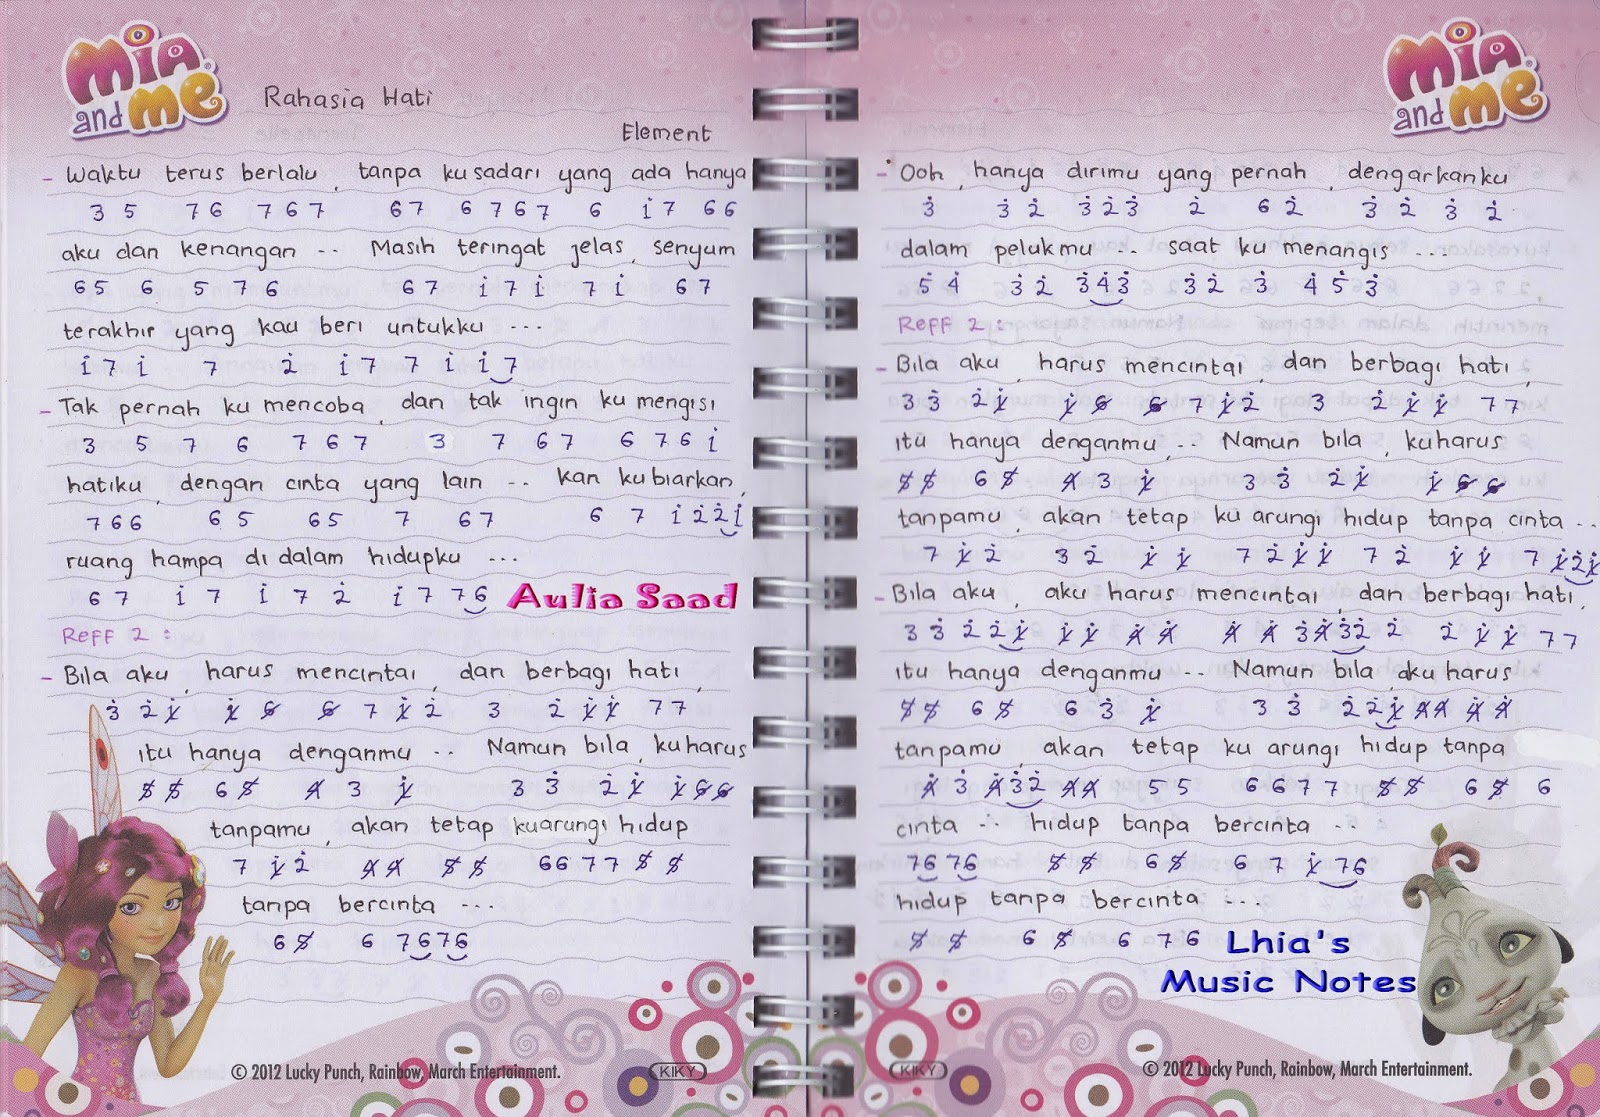 mia and me
Rahasia Hati
Element
- Waktu terus berlalu, tanpa kusadari yang ada hanya
3 5 7 6 7 6 7 6 7 6 7 6 7 6 i̇ 7 6 6
aku dan kenangan -- Masih teringat jelas, senyum
6 5 6 5 7 6 6 7 i̇ 7 i̇ 7 i̇ 6 7
terakhir yang kau beri untukku ---
i̇ 7 i̇ 7 2̇ i̇ 7 7 i̇ i̇ 7
- Tak pernah ku mencoba, dan tak ingin ku mengisi
3 5 7 6 7 6 7 3 7 6 7 6 7 6 i̇
hatiku, dengan cinta yang lain -- kan kubiarkan,
7 6 6 6 5 6 5 7 6 7 6 7 i̇ 2̇ 2̇ i̇
ruang hampa di dalam hidupku ---
6 7 i̇ 7 i̇ 7 2̇ i̇ 7 7 6
Aulia Saad
Reff 2 :
- Bila aku, harus mencintai, dan berbagi hati,
3̇ 2̇ i̇ i̇ 6 6 7 i̇ 2̇ 3 2̇ i̇ i̇ 7 7
itu hanya denganmu -- Namun bila, kuharus
5 5 6 5 4 3 i̇ 3 3̇ 2̇ i̇ i̇ 6 6
tanpamu, akan tetap kuarungi hidup
7 i̇ 2̇ 4 4 5 5 6 6 7 7 5 5
tanpa bercinta ---
6 5 6 7 6 7 6
© 2012 Lucky Punch, Rainbow, March Entertainment.
KIKY
mia and me
- Ooh, hanya dirimu yang pernah, dengarkanku
3̇ 3̇ 2̇ 3̇ 2̇ 3̇ 2̇ 6 2̇ 3̇ 2̇ 3̇ 2̇
dalam pelukmu -- saat ku menangis ---
5̇ 4̇ 3̇ 2̇ 3̇ 4̇ 3̇ 3̇ 2̇ 3̇ 4̇ 5̇ 3̇
Reff 2 :
- Bila aku, harus mencintai, dan berbagi hati,
3 3̇ 2̇ i̇ i̇ 6 6 7 i̇ 2̇ 3 2̇ i̇ i̇ 7 7
itu hanya denganmu, -- Namun bila, kuharus
5 5 6 5 4 3 i̇ 3 3̇ 2̇ i̇ i̇ 6 6
tanpamu, akan tetap ku arungi hidup tanpa cinta --
7 i̇ 2̇ 3 2̇ i̇ i̇ 7 2̇ i̇ i̇ 7 2̇ i̇ i̇ 7 i̇ 2̇ i̇
- Bila aku, aku harus mencintai, dan berbagi hati,
3 3̇ 2̇ 2̇ i̇ i̇ i̇ 4 4 4 4 3 4 3̇ 2̇ 2̇ 2̇ i̇ i̇ 7 7
itu hanya denganmu -- Namun bila, aku harus
5 5 6 5 6 3̇ i̇ 3 3̇ 2̇ 2̇ i̇ 4 4 4 4
tanpamu, akan tetap ku arungi hidup tanpa
4 3̇ 4 3̇ 2̇ 4 4 5 5 6 6 7 7 5 5 6 5 6
cinta -- hidup tanpa bercinta --
7 6 7 6 5 5 6 5 6 7 i̇ 7 6
hidup tanpa bercinta ---
5 5 6 5 6 7 6
Lhia's
Music Notes
© 2012 Lucky Punch, Rainbow, March Entertainment.
KIKY